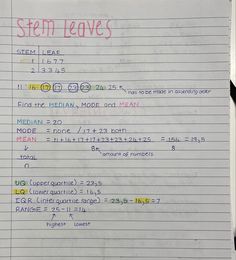 Stem Leaves
STEM LEAF
1 | 1 6 7 7
2 | 3 3 4 5
11 16 17 17 23 23 24 25 has to be made in ascending order
Find the MEDIAN, MODE and MEAN
MEDIAN = 20
MODE = none / 17 + 23 both
MEAN = 11+16+17+17+23+23+24+25 = 154 = 19,5
total 8 amount of numbers 8
UQ (upper quartile) = 23,5
LQ (lower quartile) = 16,5
IQR (inter quartile range) = 23,5 - 16,5 = 7
RANGE = 25 - 11 = 14
highest lowest